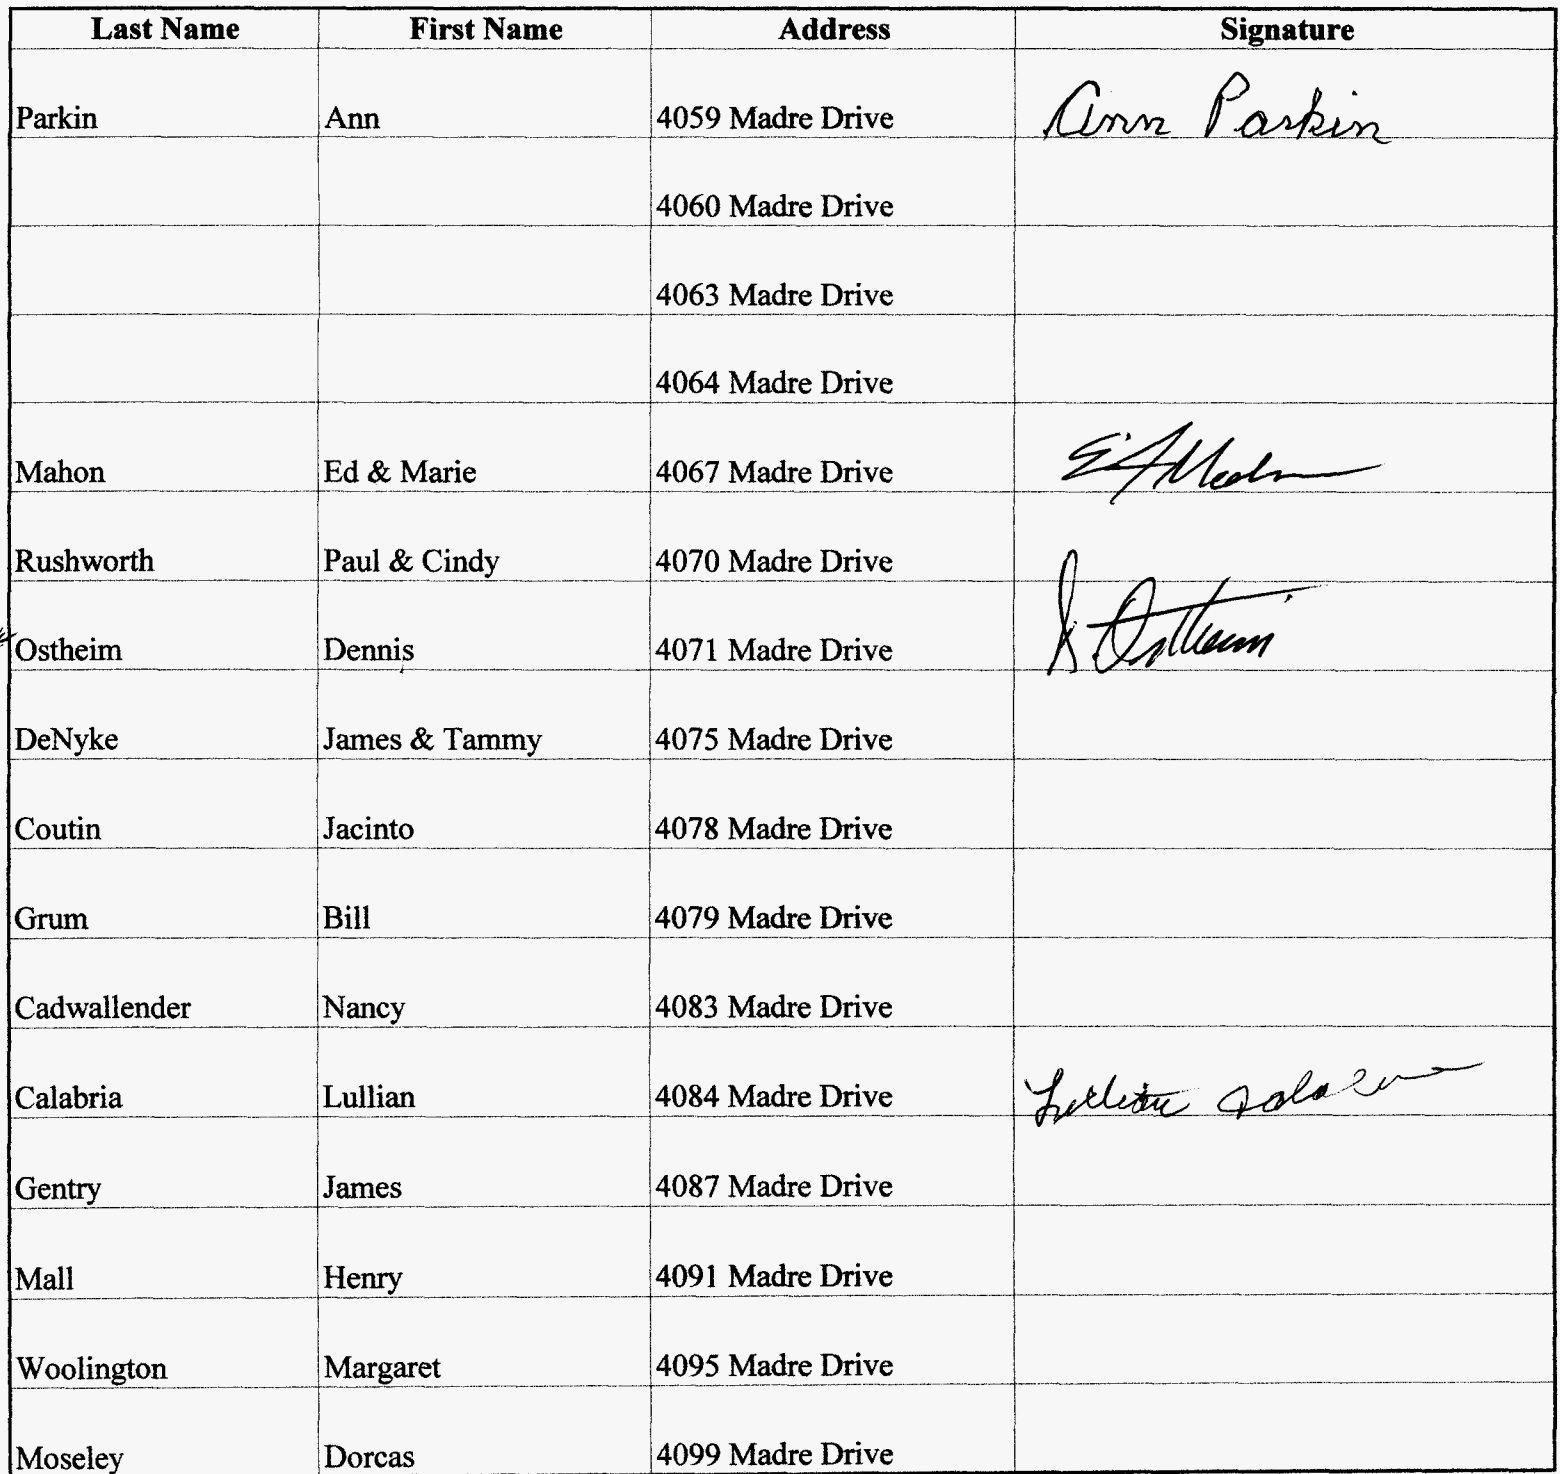 Last Name First Name Address Signature
Parkin Ann 4059 Madre Drive Ann Parkin
4060 Madre Drive
4063 Madre Drive
4064 Madre Drive
Mahon Ed & Marie 4067 Madre Drive
Rushworth Paul & Cindy 4070 Madre Drive
Ostheim Dennis 4071 Madre Drive D. Ostheim
DeNyke James & Tammy 4075 Madre Drive
Coutin Jacinto 4078 Madre Drive
Grum Bill 4079 Madre Drive
Cadwallender Nancy 4083 Madre Drive
Calabria Lullian 4084 Madre Drive
Gentry James 4087 Madre Drive
Mall Henry 4091 Madre Drive
Woolington Margaret 4095 Madre Drive
Moseley Dorcas 4099 Madre Drive